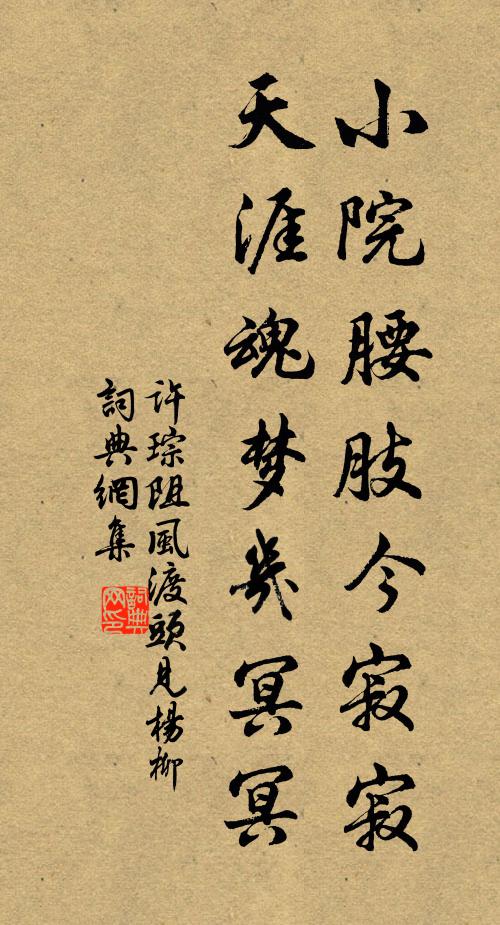 小院腰肢今寂寂
天涯魂梦幾冥冥
许琮阻風渡頭見楊柳
詞典網集
詞典網印